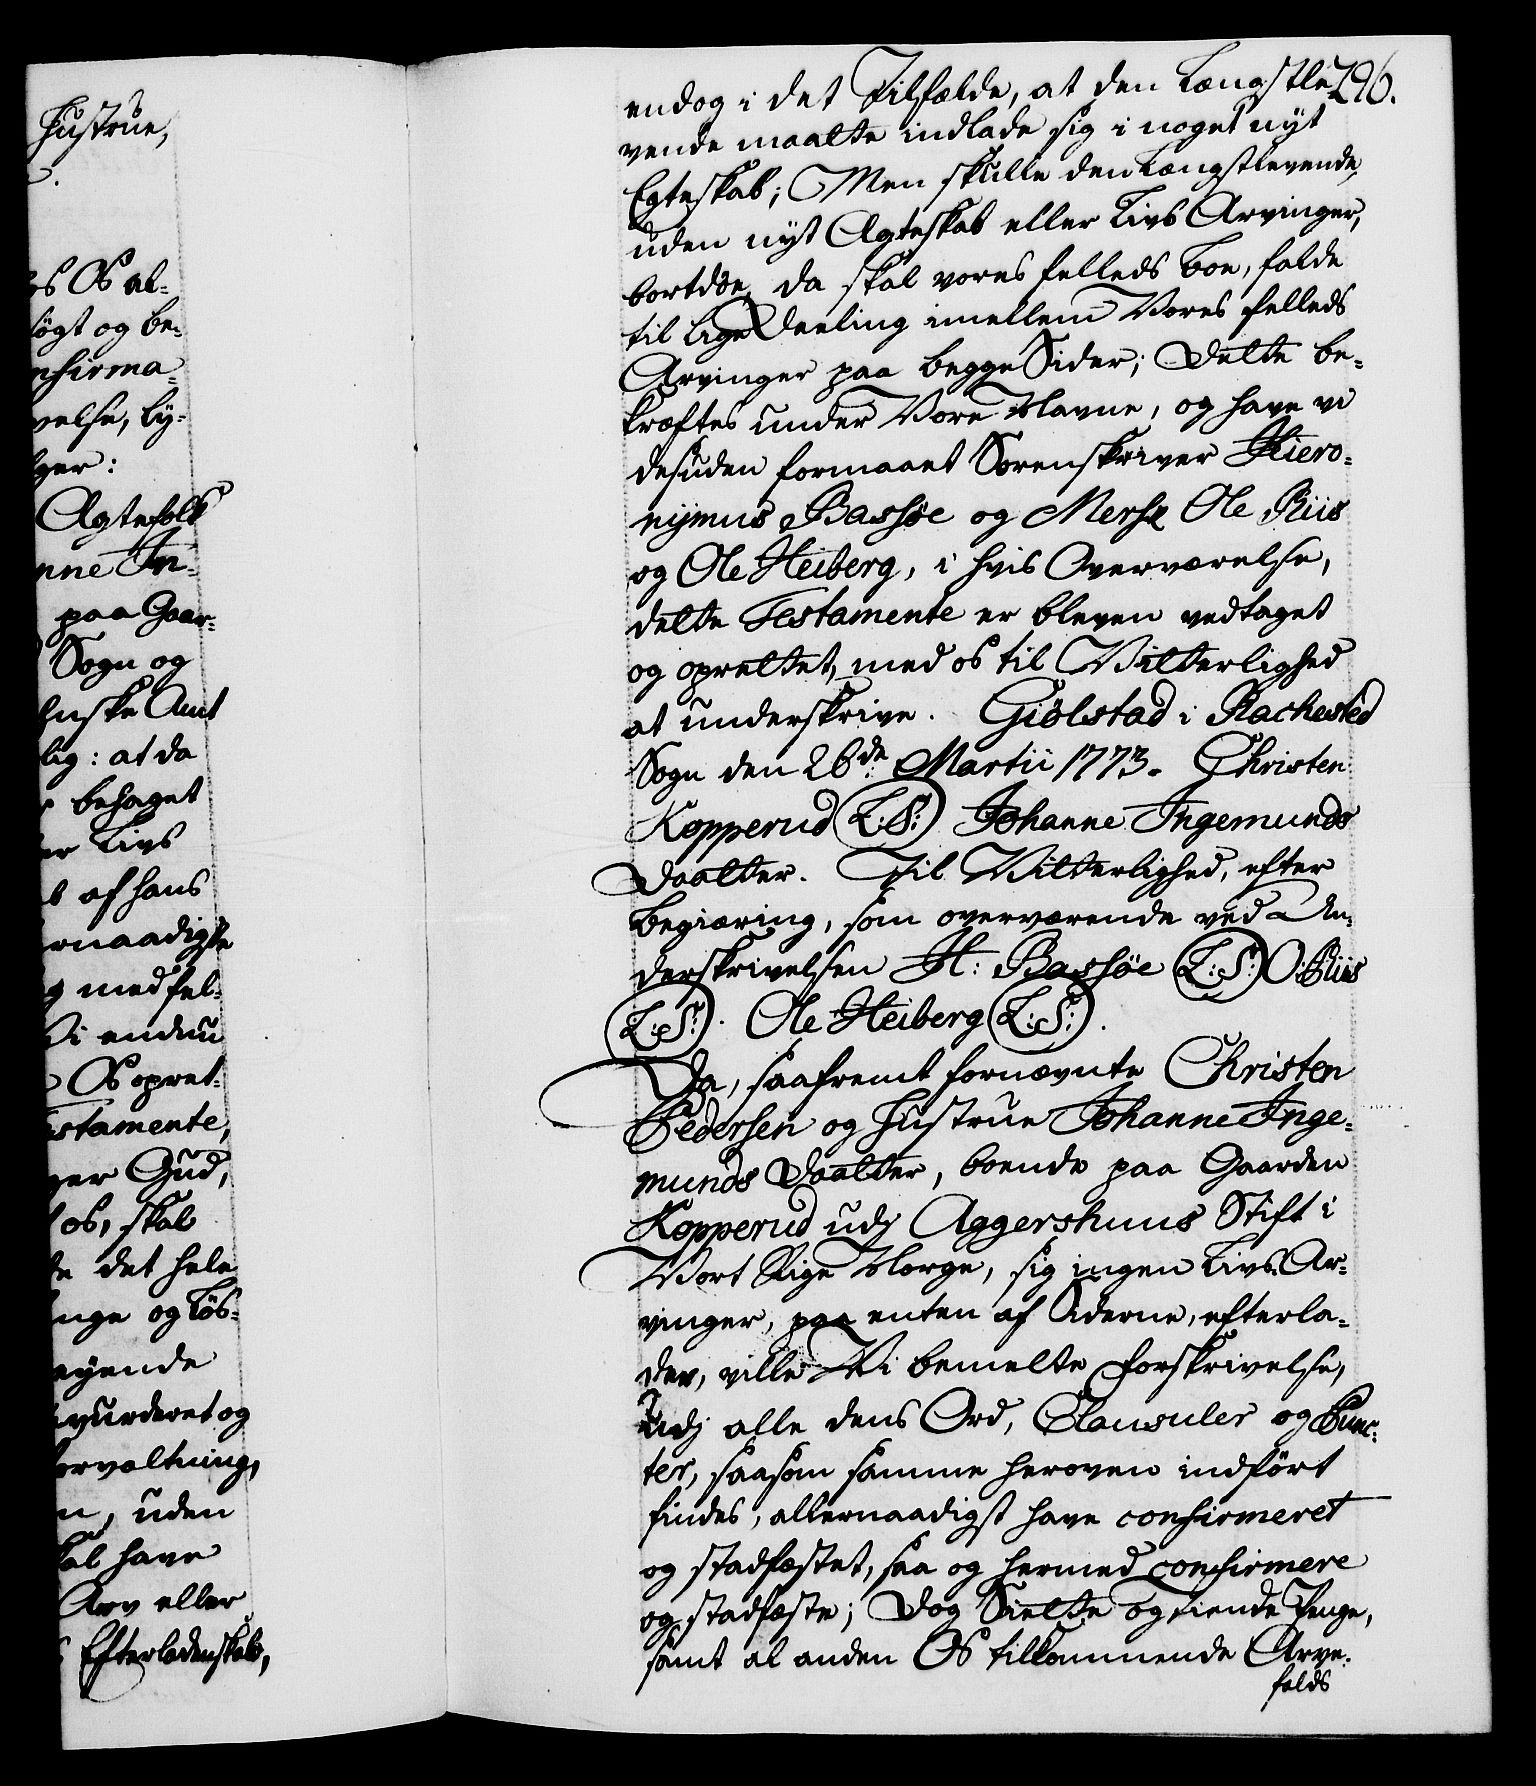 Hustrue,
os Os al-
søgt og be-
nfirma-
velse, ly-
lger:
Ægtefolk
nne In-
paa Gaar-
Sogn og
huuske Amt
lig: at da
behaget
er Livs
af hans
ernaadigste
g med fæl-
Vi endnu
Os opret-
estamente,
ger Gud,
os, skal
det heele
nge og Løs-
eyende
vurderet og
orvaltning,
n, uden
kal have
Arv eller
Efterladenskab,
296.
endog i det Tilfælde, at den Længstle-
vende maatte indlade sig i noget nyt
Egteskab; Men skulle den Længstlevende,
uden nyt Ægteskab eller Livs Arvinger,
bortdøe, da skal vores fælleds Boe, falde
til lige Deeling imellem Vores fælleds
Arvinger paa begge Sider; Dette be-
kræftes under Vore Navne, og have vi
desuden formaaet Sorenskriver Hiero-
nijmus Bassøe og Mons.r Ole Riis
og Ole Heiberg, i hvis Overværelse,
dette Testamente er bleven vedtaget
og oprettet, med os til Vitterlighed
at underskrive. Giølstad i Rachested
Sogn den 26de Martii 1773. Christen
Kopperud (L:S:) Johanne Ingemunds
Daatter. Til Vitterlighed, efter
Begiæring, som overværende ved Un-
derskrivelsen H: Bassøe (L:S:) O: Riis
(L:S:). Ole Heiberg (L:S:).
Da, saafremt fornævnte Christen
Pedersen og Hustrue Johanne Inge-
munds Daatter, boende paa Gaarden
Kopperud udj Aggershuus Stift i
Vort Rige Norge, sig ingen Livs Ar-
vinger, paa enten af Siderne, efterla-
der, ville Vi bemelte Forskrivelse,
Udj alle dens Ord, Clausuler og Punc-
ter, saasom samme heroven indført
findes, allernaadigst have confirmeret
og stadfæstet, saa og hermed confirmere
og stadfæste; Dog Siette og Tiende Penge,
samt al anden Os tilkommende Arve-
falds